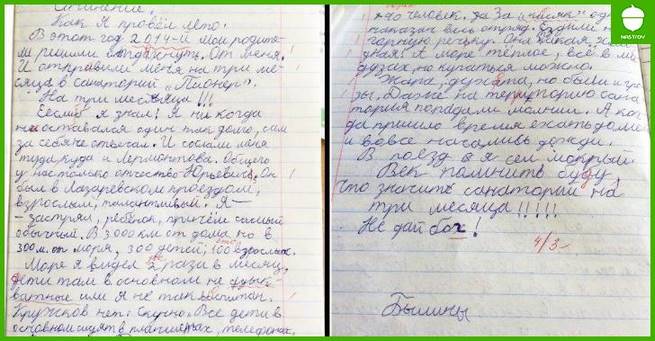 Сочинение.
Как я провёл лето.
В этот год 2014-й мои родите-
ли решили отдахнуть. От меня.
И отправили меня на три ме-
сяца в санаторий „Пионер".
На три месяца!!!
Еслиб я знал! Я ни когда
ни оставался один так долго, сам
за себя не отвечал. И сослали меня
туда куда и Лермонтова. Общего
у нас только отчество Юрьевич. Он
был в Лазаревском проездом,
взрослый, талантливый. Я —
— застрял, ребёнок, причём самый
обычный. В 3000 км от дома, но в
300 м. от моря, 300 детей, 100 взрослых.
Море я видел 2 раза в месяц,
дети там в основном не
или я не так воспитан.
Кружков нет. Скучно. Все дети в
основном сидят в планшетах, телефонах,
человек. да за
наказан весь отряд. Ездили на
речку. Она
А море тёплое, всё в ме-
дузах, но купаться можно.
Жара держата, но были и гро-
зы. Даже на территорию сана-
тория попадали молнии. А ког-
да пришло время ехать домой
и вовсе дожди.
В поезд я сел мокрый.
Век помнить буду,
что значить санаторий на
три месяца!!!!!
Не дай бох!
4/3-
Былины
NASTROY